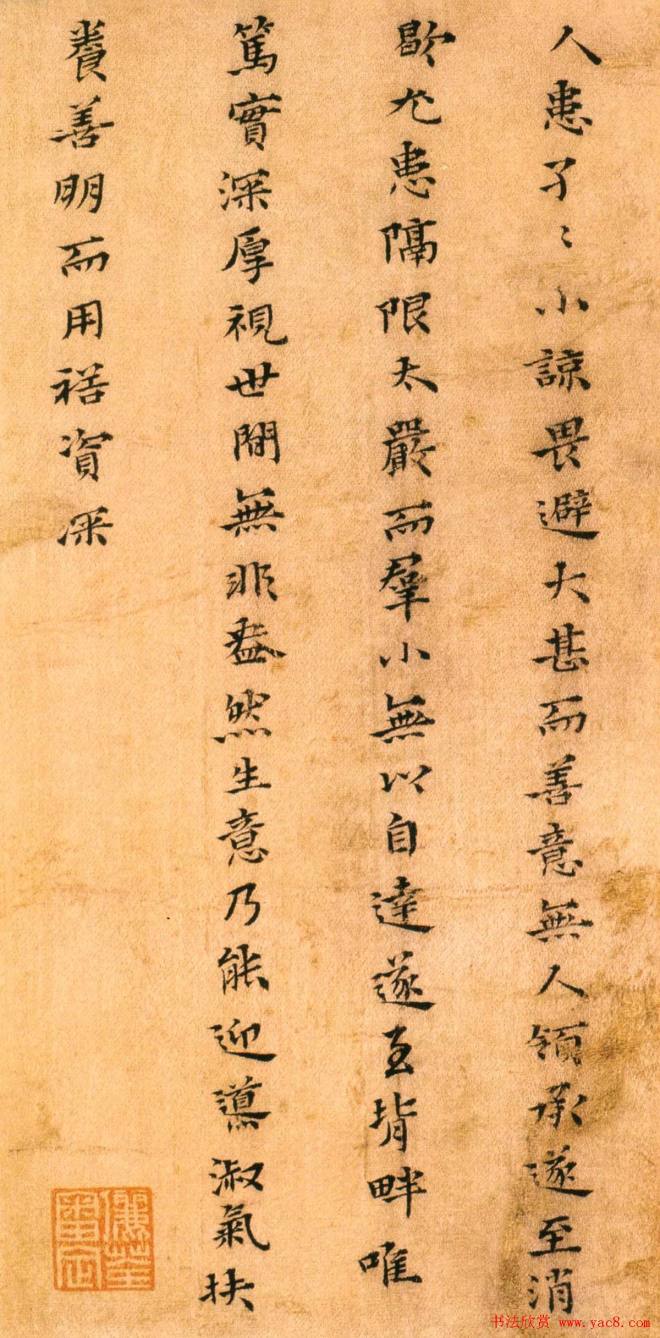 人患孑〻小諒畏避大甚而善意無人領承遂至消
歇尤患隔限太嚴而羣小無以自達遂至背畔唯
篤實深厚視世間無非盎然生意乃能迎導淑氣扶
養善明而用裕資深
书法欣赏 www.yac8.com